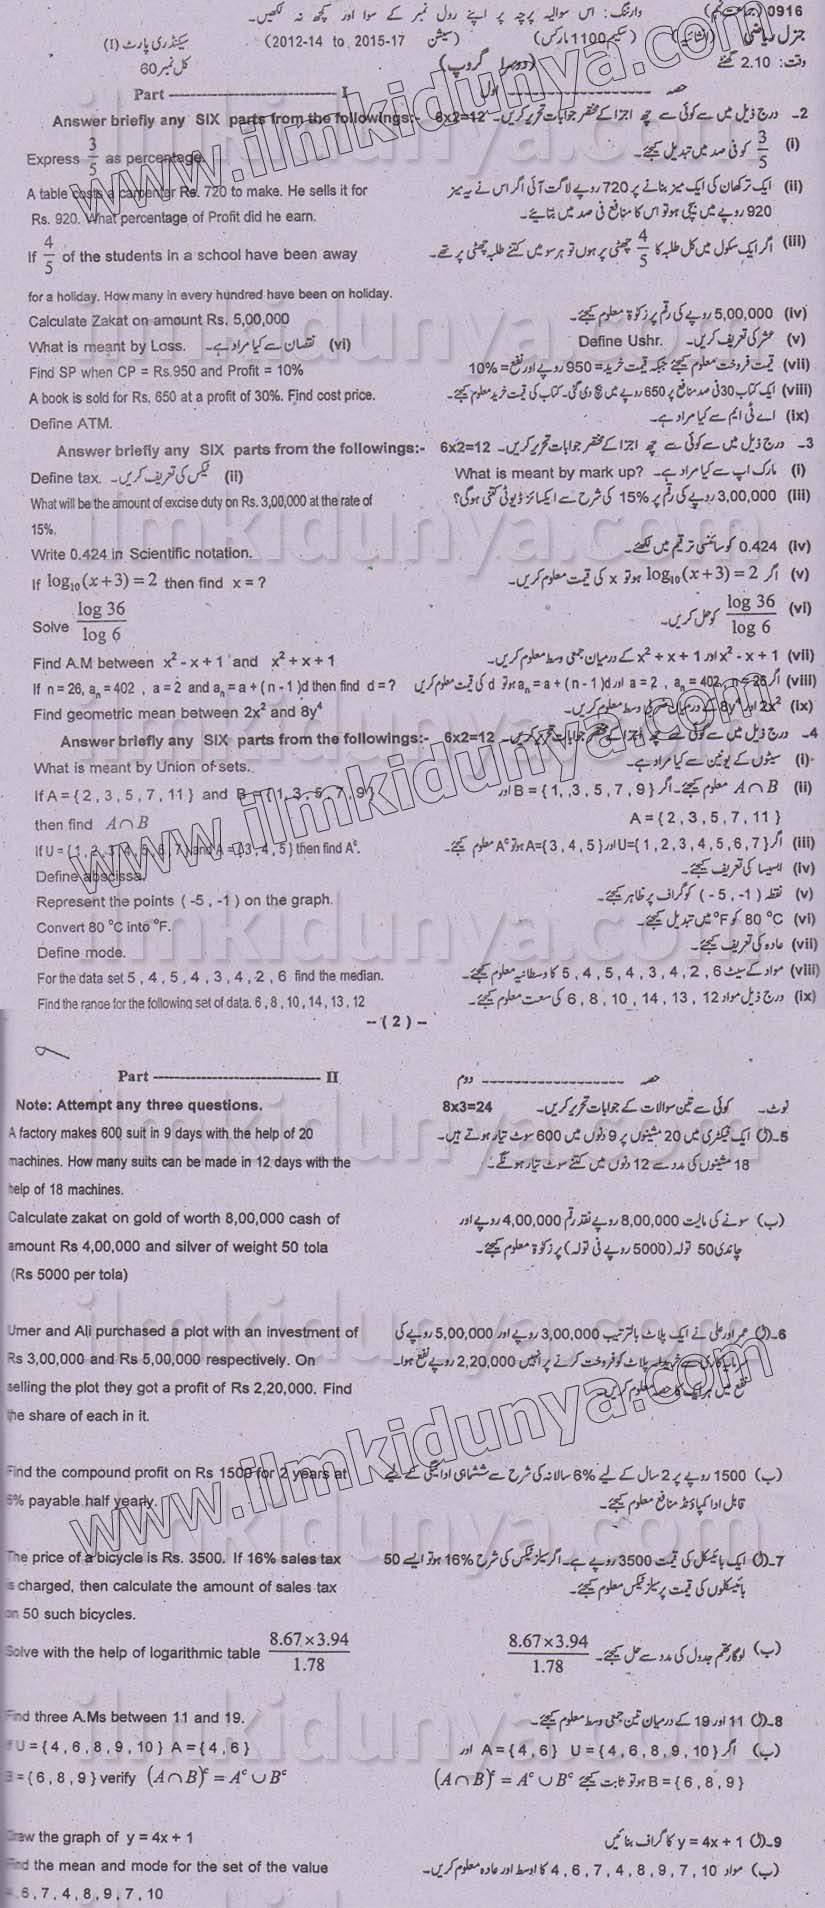 0916 (جماعت نہم) وارننگ: اس سوالیہ پرچہ پر اپنے رول نمبر کے سوا اور کچھ نہ لکھیں۔
جنرل ریاضی (انشائیہ) (سکیم 1100 مارکس) (سیشن 2012-14 to 2015-17) سیکنڈری پارٹ (I)
وقت: 2.10 گھنٹے (دوسرا گروپ) کل نمبر 60
Part ---------------------------- I حصہ ------------------ اول
Answer briefly any SIX parts from the followings:- 6x2=12 2۔ درج ذیل میں سے کوئی سے چھ اجزا کے مختصر جوابات تحریر کریں۔
Express 3/5 as percentage. (i) 3/5 کو فی صد میں تبدیل کیجئے۔
A table costs a carpenter Rs. 720 to make. He sells it for (ii) ایک ترکھان کی ایک میز بنانے پر 720 روپے لاگت آئی اگر اس نے یہ میز
Rs. 920. What percentage of Profit did he earn. 920 روپے میں بیچی ہو تو اس کا منافع فی صد میں بتائیے۔
If 4/5 of the students in a school have been away (iii) اگر ایک سکول میں کل طلبہ کا 4/5 چھٹی پر ہوں تو ہر سو میں کتنے طلبہ چھٹی پر تھے۔
for a holiday. How many in every hundred have been on holiday.
Calculate Zakat on amount Rs. 5,00,000 (iv) 5,00,000 روپے کی رقم پر زکوٰۃ معلوم کیجئے۔
What is meant by Loss. نقصان سے کیا مراد ہے۔ (vi) Define Ushr. عشر کی تعریف کریں۔ (v)
Find SP when CP = Rs.950 and Profit = 10% (vii) قیمت فروخت معلوم کیجئے جبکہ قیمت خرید = 950 روپے اور نفع = 10%
A book is sold for Rs. 650 at a profit of 30%. Find cost price. (viii) ایک کتاب 30 فی صد منافع پر 650 روپے میں بیچ دی گئی۔ کتاب کی قیمت خرید معلوم کیجئے۔
Define ATM. (ix) اے ٹی ایم سے کیا مراد ہے۔
Answer briefly any SIX parts from the followings:- 6x2=12 3۔ درج ذیل میں سے کوئی سے چھ اجزا کے مختصر جوابات تحریر کریں۔
Define tax. ٹیکس کی تعریف کریں۔ (ii) What is meant by mark up? مارک اپ سے کیا مراد ہے۔ (i)
What will be the amount of excise duty on Rs. 3,00,000 at the rate of (iii) 3,00,000 روپے کی رقم پر 15% کی شرح سے ایکسائز ڈیوٹی کتنی ہوگی؟
15%.
Write 0.424 in Scientific notation. (iv) 0.424 کو سائنسی ترقیم میں لکھئے۔
If log₁₀(x+3) = 2 then find x = ? (v) اگر log₁₀(x+3) = 2 ہو تو x کی قیمت معلوم کریں۔
Solve log 36 / log 6 (vi) log 36 / log 6 کو حل کریں۔
Find A.M between x² - x + 1 and x² + x + 1 (vii) x² - x + 1 اور x² + x + 1 کے درمیان جمعی وسط معلوم کریں۔
If n = 26, aₙ = 402 , a = 2 and aₙ = a + ( n - 1 )d then find d = ? (viii) اگر n = 26 ,aₙ = 402 , a = 2 اور aₙ = a + ( n - 1 )d ہو تو d کی قیمت معلوم کریں
Find geometric mean between 2x² and 8y⁴ (ix) 2x² اور 8y⁴ کے درمیان وسط معلوم کریں۔
Answer briefly any SIX parts from the followings:- 6x2=12 4۔ درج ذیل میں سے کوئی سے چھ اجزا کے مختصر جوابات تحریر کریں۔
What is meant by Union of sets. (i) سیٹوں کے یونین سے کیا مراد ہے۔
If A = { 2 , 3 , 5 , 7 , 11 } and B = { 1, 3 , 5 , 7 , 9 } (ii) A∩B معلوم کیجئے۔ اگر B = { 1, ,3 , 5 , 7 , 9 } اور
then find A∩B A = { 2 , 3 , 5 , 7 , 11 }
If U = { 1 , 2 , 3 , 4 , 5 , 6 , 7 } and A = { 3 , 4 , 5 } then find Aᶜ. (iii) اگر U={ 1 , 2 , 3 , 4 , 5 , 6 , 7 } اور A={ 3 , 4 , 5 } ہو تو Aᶜ معلوم کیجئے۔
Define abscissa. (iv) ایبسیسا کی تعریف کیجئے۔
Represent the points ( -5 , -1 ) on the graph. (v) نقطہ ( -5 , -1 ) کو گراف پر ظاہر کیجئے۔
Convert 80 °C into °F. (vi) 80 °C کو °F میں تبدیل کیجئے۔
Define mode. (vii) عادہ کی تعریف کیجئے۔
For the data set 5 , 4 , 5 , 4 , 3 , 4 , 2 , 6 find the median. (viii) مواد کے سیٹ 5 , 4 , 5 , 4 , 3 , 4 , 2 , 6 کا وسطانیہ معلوم کیجئے۔
Find the range for the following set of data. 6 , 8 , 10 , 14 , 13 , 12 (ix) درج ذیل مواد 6 , 8 , 10 , 14 , 13 , 12 کی سعت معلوم کیجئے۔
-- ( 2 ) --
Part ------------------------------ II حصہ ------------------ دوم
Note: Attempt any three questions. 8x3=24 نوٹ۔ کوئی سے تین سوالات کے جوابات تحریر کریں۔
A factory makes 600 suit in 9 days with the help of 20 5۔(ا) ایک فیکٹری میں 20 مشینوں پر 9 دنوں میں 600 سوٹ تیار ہوتے ہیں۔
machines. How many suits can be made in 12 days with the 18 مشینوں کی مدد سے 12 دنوں میں کتنے سوٹ تیار ہونگے۔
help of 18 machines.
Calculate zakat on gold of worth 8,00,000 cash of (ب) سونے کی مالیت 8,00,000 روپے نقد رقم 4,00,000 روپے اور
amount Rs 4,00,000 and silver of weight 50 tola چاندی 50 تولہ (5000 روپے فی تولہ) پر زکوٰۃ معلوم کیجئے۔
(Rs 5000 per tola)
Umer and Ali purchased a plot with an investment of 6۔(ا) عمر اور علی نے ایک پلاٹ بالترتیب 3,00,000 روپے اور 5,00,000 روپے کی
Rs 3,00,000 and Rs 5,00,000 respectively. On سرمایہ کاری سے خریدا۔ پلاٹ کو فروخت کرنے پر انہیں 2,20,000 روپے نفع ہوا۔
selling the plot they got a profit of Rs 2,20,000. Find نفع میں ہر ایک کا حصہ معلوم کریں۔
the share of each in it.
Find the compound profit on Rs 1500 for 2 years at (ب) 1500 روپے پر 2 سال کے لیے 6% سالانہ کی شرح سے ششماہی ادائیگی کے لیے
6% payable half yearly. قابل ادا کمپاؤنڈ منافع معلوم کیجئے۔
The price of a bicycle is Rs. 3500. If 16% sales tax 7۔(ا) ایک بائیسکل کی قیمت 3500 روپے ہے۔ اگر سیلز ٹیکس کی شرح 16% ہو تو ایسے 50
is charged, then calculate the amount of sales tax بائیسکلوں کی قیمت پر سیلز ٹیکس معلوم کیجئے۔
on 50 such bicycles.
Solve with the help of logarithmic table 8.67×3.94 / 1.78 (ب) لوگارتھم جدول کی مدد سے حل کیجئے۔ 8.67×3.94 / 1.78
Find three A.Ms between 11 and 19. 8۔(ا) 11 اور 19 کے درمیان تین جمعی وسط معلوم کیجئے۔
If U = { 4 , 6 , 8 , 9 , 10 } A = { 4 , 6 } (ب) اگر U = { 4 , 6 , 8 , 9 , 10 } A = { 4 , 6 } اور
B = { 6 , 8 , 9 } verify (A∩B)ᶜ = Aᶜ∪Bᶜ B = { 6 , 8 , 9 } ہو تو ثابت کیجئے (A∩B)ᶜ = Aᶜ∪Bᶜ
Draw the graph of y = 4x + 1 9۔(ا) y = 4x + 1 کا گراف بنائیں
Find the mean and mode for the set of the value (ب) مواد 4 , 6 , 7 , 4 , 8 , 9 , 7 , 10 کا اوسط اور عادہ معلوم کریں۔
4 , 6 , 7 , 4 , 8 , 9 , 7 , 10
www.ilmkidunya.com
ilmkidunya.com